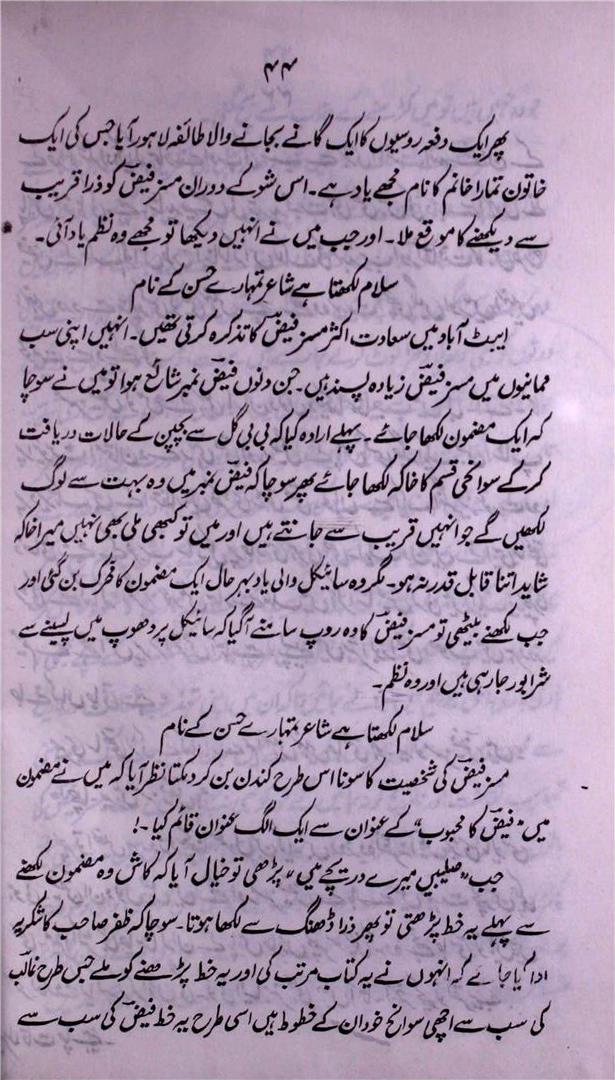 ۴۴
پھر ایک دفعہ روسیوں کا ایک گانے بجانے والا طائفہ لاہور آیا جس کی ایک
خاتون تمارا خانم کا نام مجھے یاد ہے۔ اس شو کے دوران مسز فیضؔ کو ذرا قریب
سے دیکھنے کا موقع ملا۔ اور جب میں نے انہیں دیکھا تو مجھے وہ نظم یاد آئی۔
سلام لکھتا ہے شاعر تمہارے حسن کے نام
ایبٹ آباد میں سعادت اکثر مسز فیضؔ کا تذکرہ کرتی تھیں۔ انہیں اپنی سب
ممانیوں میں مسز فیضؔ زیادہ پسند ہیں۔ جن دنوں فیضؔ نمبر شائع ہوا تو میں نے سوچا
کہ ایک مضمون لکھا جائے۔ پہلے ارادہ کیا کہ بی بی گل سے بچپن کے حالات دریافت
کر کے سوانحی قسم کا خاکہ لکھا جائے پھر سوچا کہ فیضؔ نمبر میں وہ بہت سے لوگ
لکھیں گے جو انہیں قریب سے جانتے ہیں اور میں تو کبھی ملی بھی نہیں میرا خاکہ
شاید اتنا قابل قدر نہ ہو۔ مگر وہ سائیکل والی یاد بہر حال ایک مضمون کا محرک بن گئی اور
جب لکھنے بیٹھی تو مسز فیضؔ کا وہ روپ سامنے آگیا کہ سائیکل پر دھوپ میں پسینے سے
شرابور جا رہی ہیں اور وہ نظم۔
سلام لکھتا ہے شاعر تمہارے حسن کے نام
مسز فیضؔ کی شخصیت کا سونا اس طرح کندن بن کر دمکتا نظر آیا کہ میں نے مضمون
میں "فیضؔ کا محبوب" کے عنوان سے ایک الگ عنوان قائم کیا۔!
جب "صلیبیں میرے دریچے میں" پڑھی تو خیال آیا کہ کاش وہ مضمون لکھنے
سے پہلے یہ خط پڑھتی تو پھر ذرا ڈھنگ سے لکھا ہوتا۔ سوچا کہ ظفر صاحب کا شکریہ
ادا کیا جائے کہ انہوں نے یہ کتاب مرتب کی اور یہ خط پڑھنے کو ملے جس طرح غالبؔ
کی سب سے اچھی سوانح خود ان کے خطوط ہیں اسی طرح یہ خط فیضؔ کی سب سے